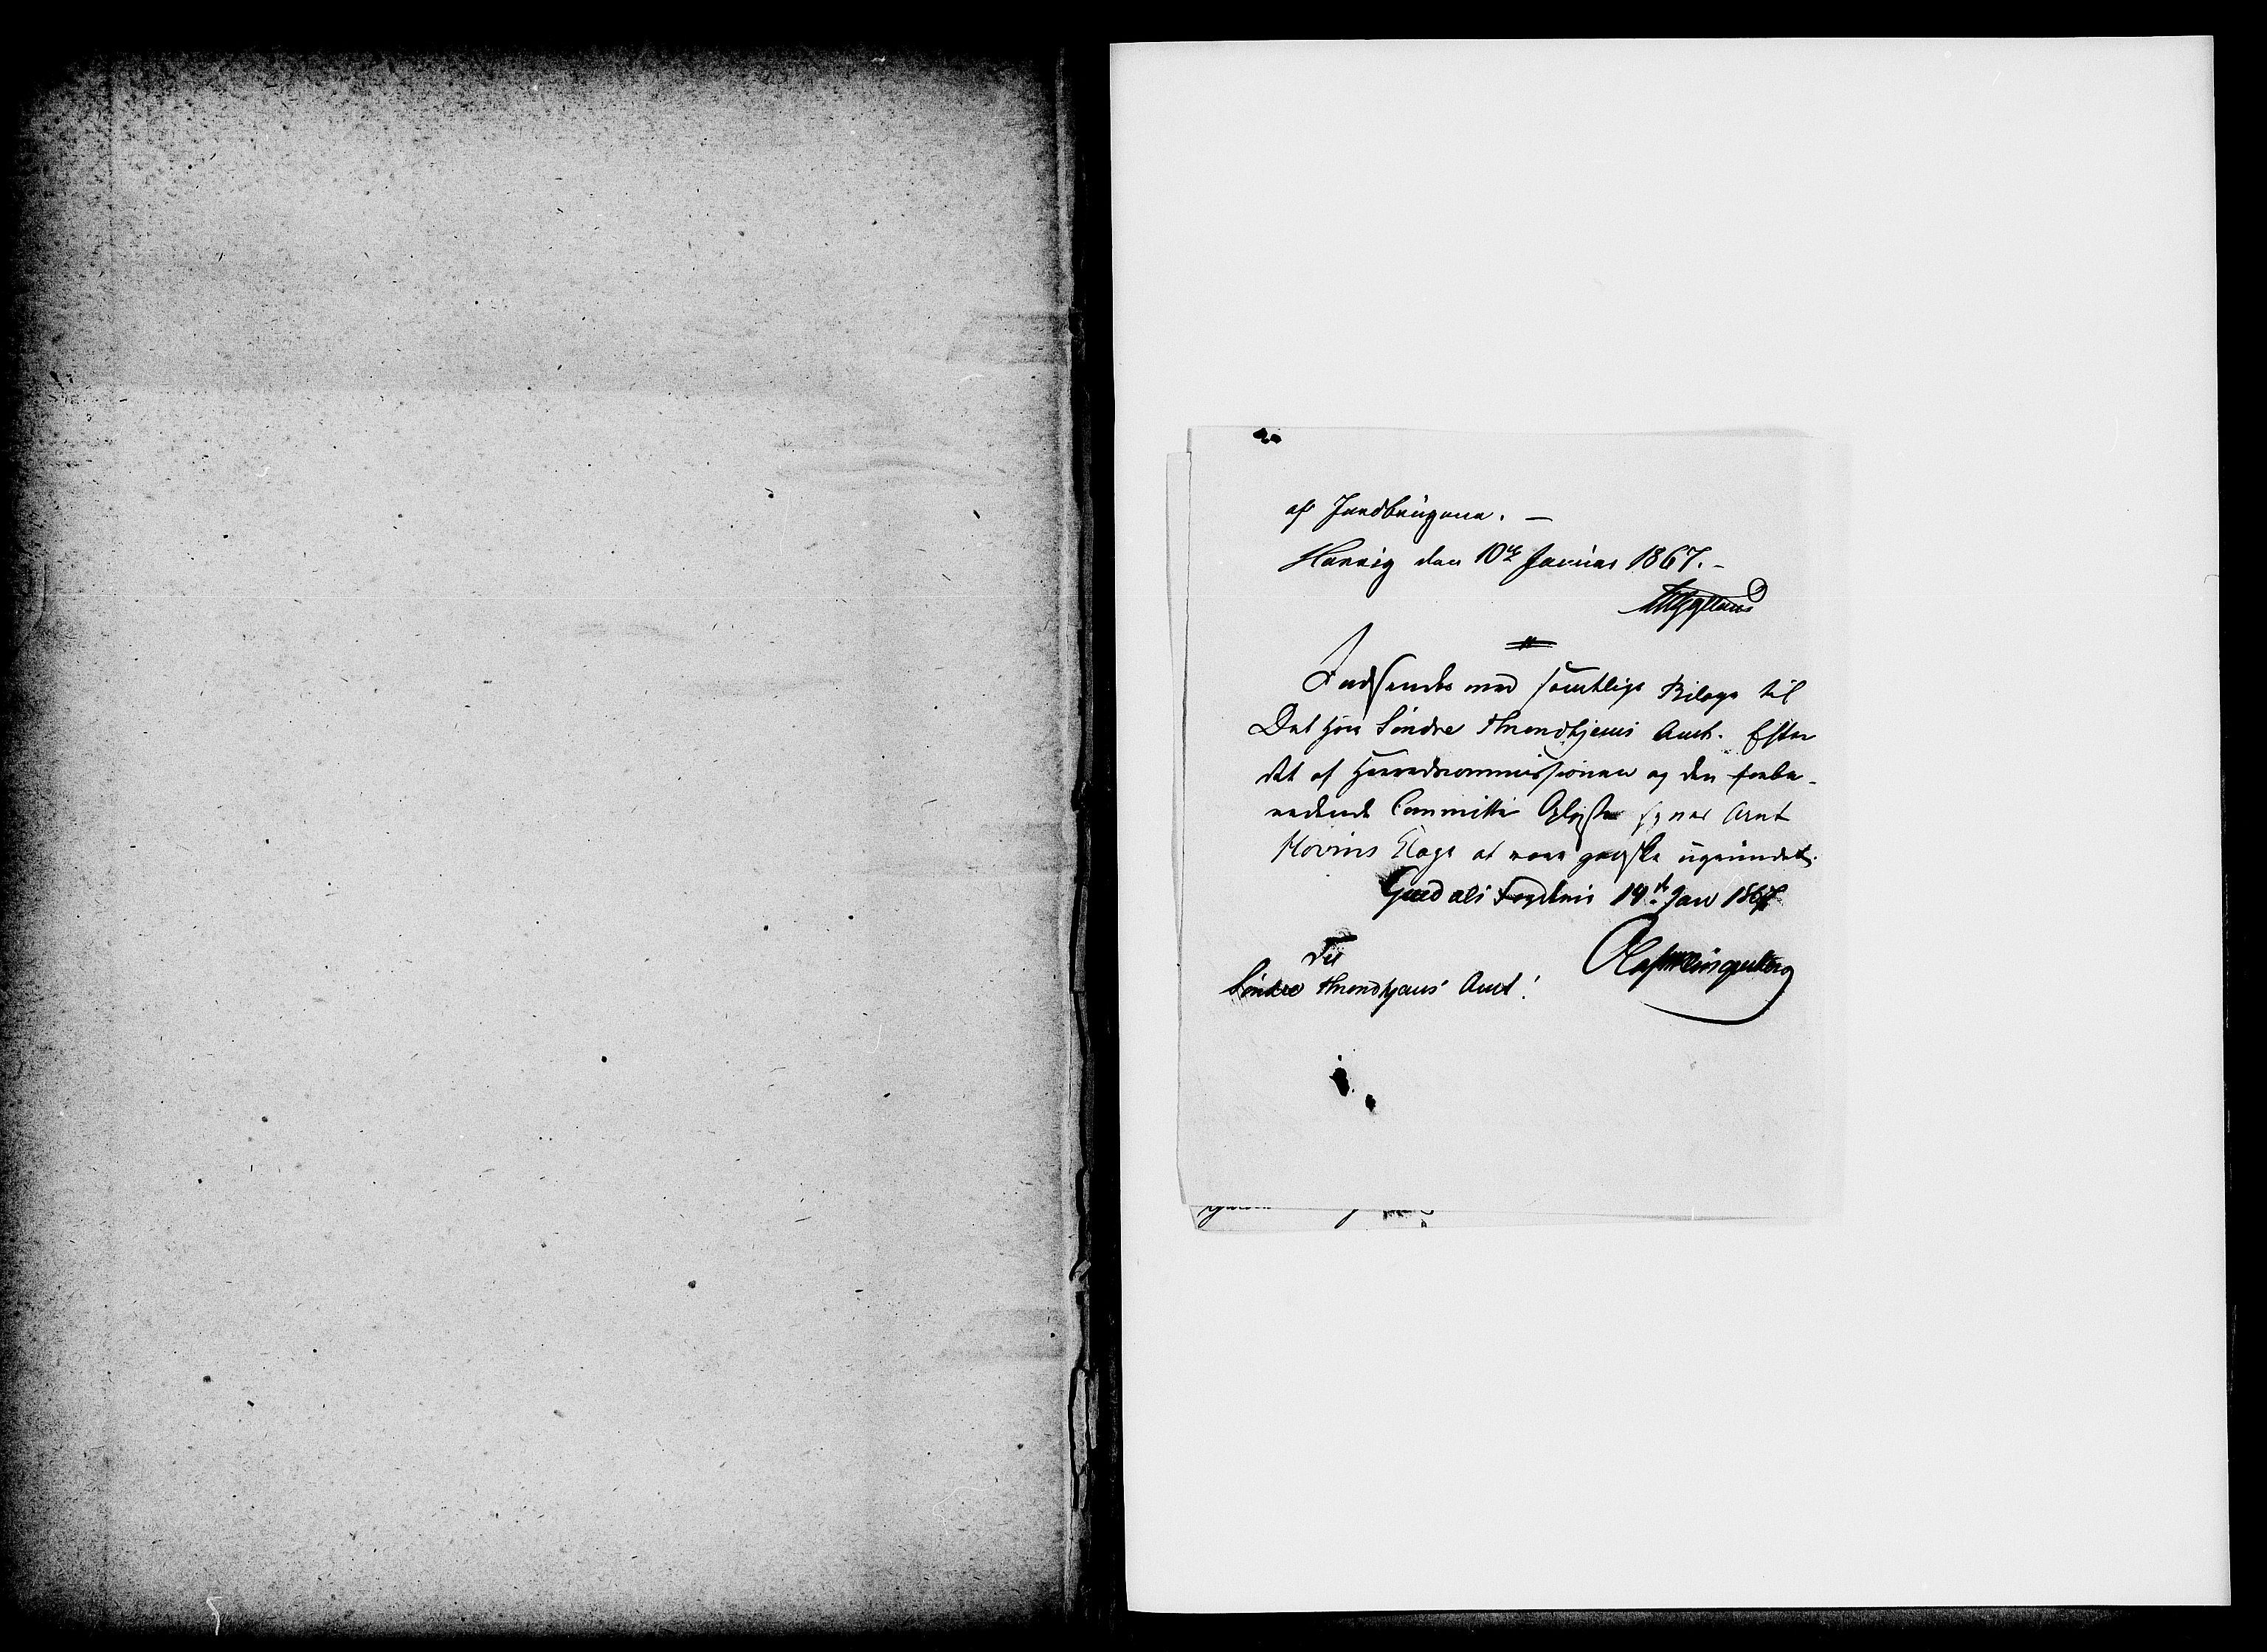 af Jordbrugene. —
Horrig den 10de Januar 1867. -
Indsendes med samtlige Bilage til
Det høie Søndre Throndhjems Amt. Efter
det af Herredscommissionen og den forbe-
redende Committe Oplyste synes Arnt
Hovins Klage at være ganske ugrundet.
Guldals Fogderi 14de Jan 1867
Til
Søndre Throndhjems Amt!